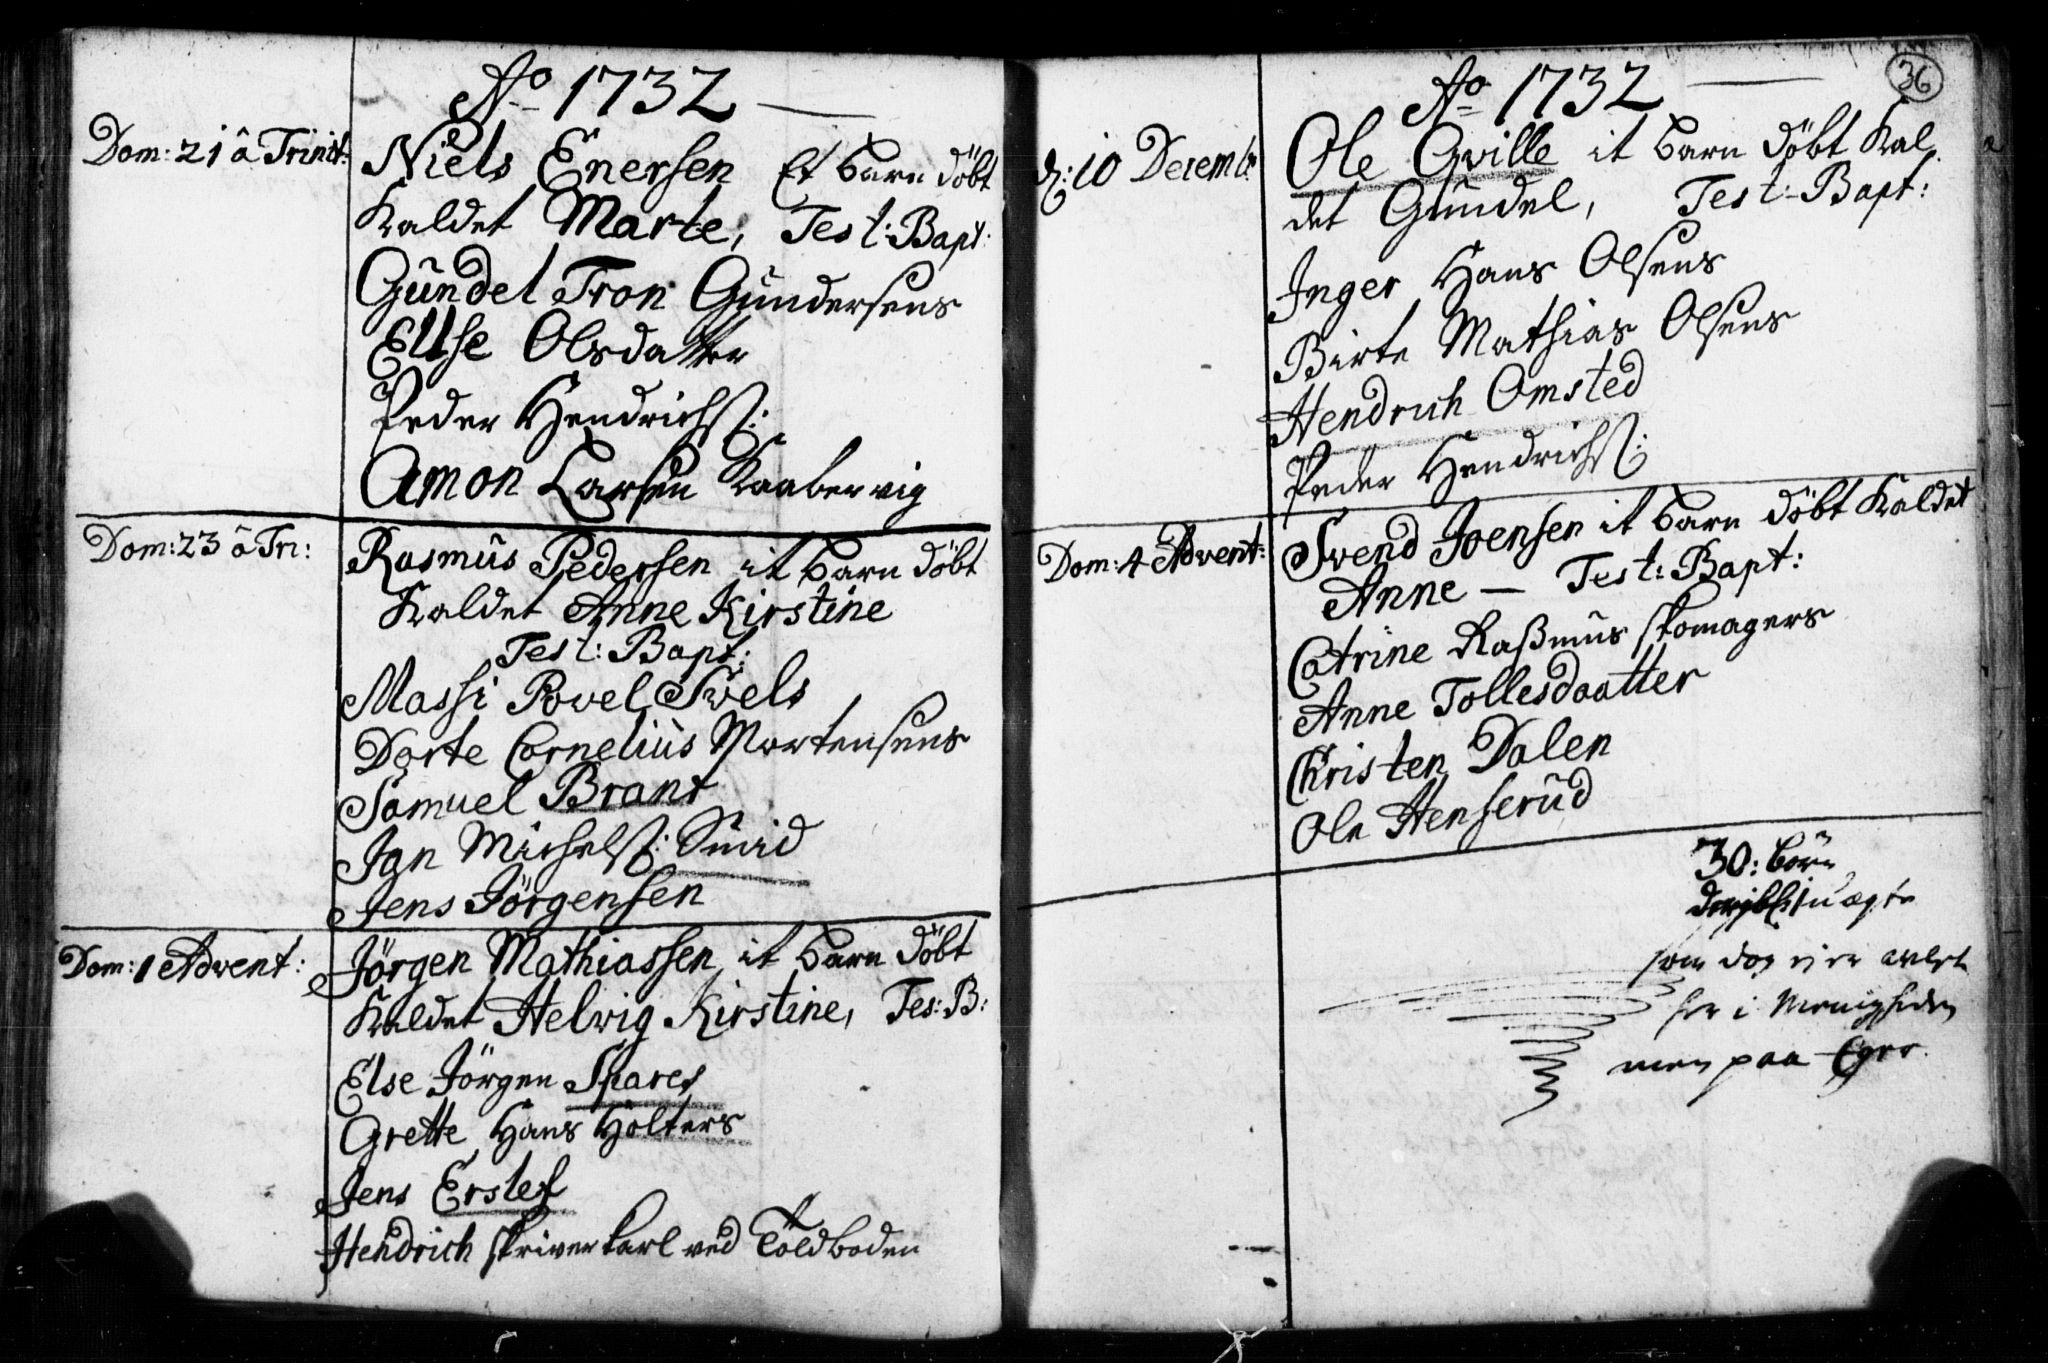 Ao 1732
Dom: 21 â Trinit: Niels Enersen Et barn döbt
Kaldet Marte, Test: Bapt:
Gundel Tron Gundersens
Ellse Olsdatter
Peder Hendrichs:
Amon Larsen Kaabervig
Dom: 23 â Tri: Rasmus Pedersen it barn döbt
Kaldet Anne Kirstine
Test: Bapt:
Massi Povel Svels
Dorte Cornelius Mortensens
Samuel Brant
Jan Michels: Smid
Jens Jörgensen
Dom: 1 Advent: Jörgen Mathiassen it barn döbt
Kaldet Helwig Kirstine, Tes: B:
Else Jörgen Spares
Grette Hans Holters
Jens Erslef
Hendrich skriverkarl ved Toldboden
36
Ao 1732
d: 10 Decemb: Ole Qville it barn döbt Kal-
det Gundel, Test: Bapt:
Inger Hans Olsens
Birte Mathias Olsens
Hendrich Omsted
Peder Hendrichs:
Dom: 4 Advent: Svend Joensen it barn döbt Kaldet
Anne — Test: Bapt:
Catrine Rasmus skomagers
Anne Tollesdaatter
Christen Dalen
Ole Henserud
30: börn
uægte
som dog ej er avlet
her i Menigheden
men paa Eger.